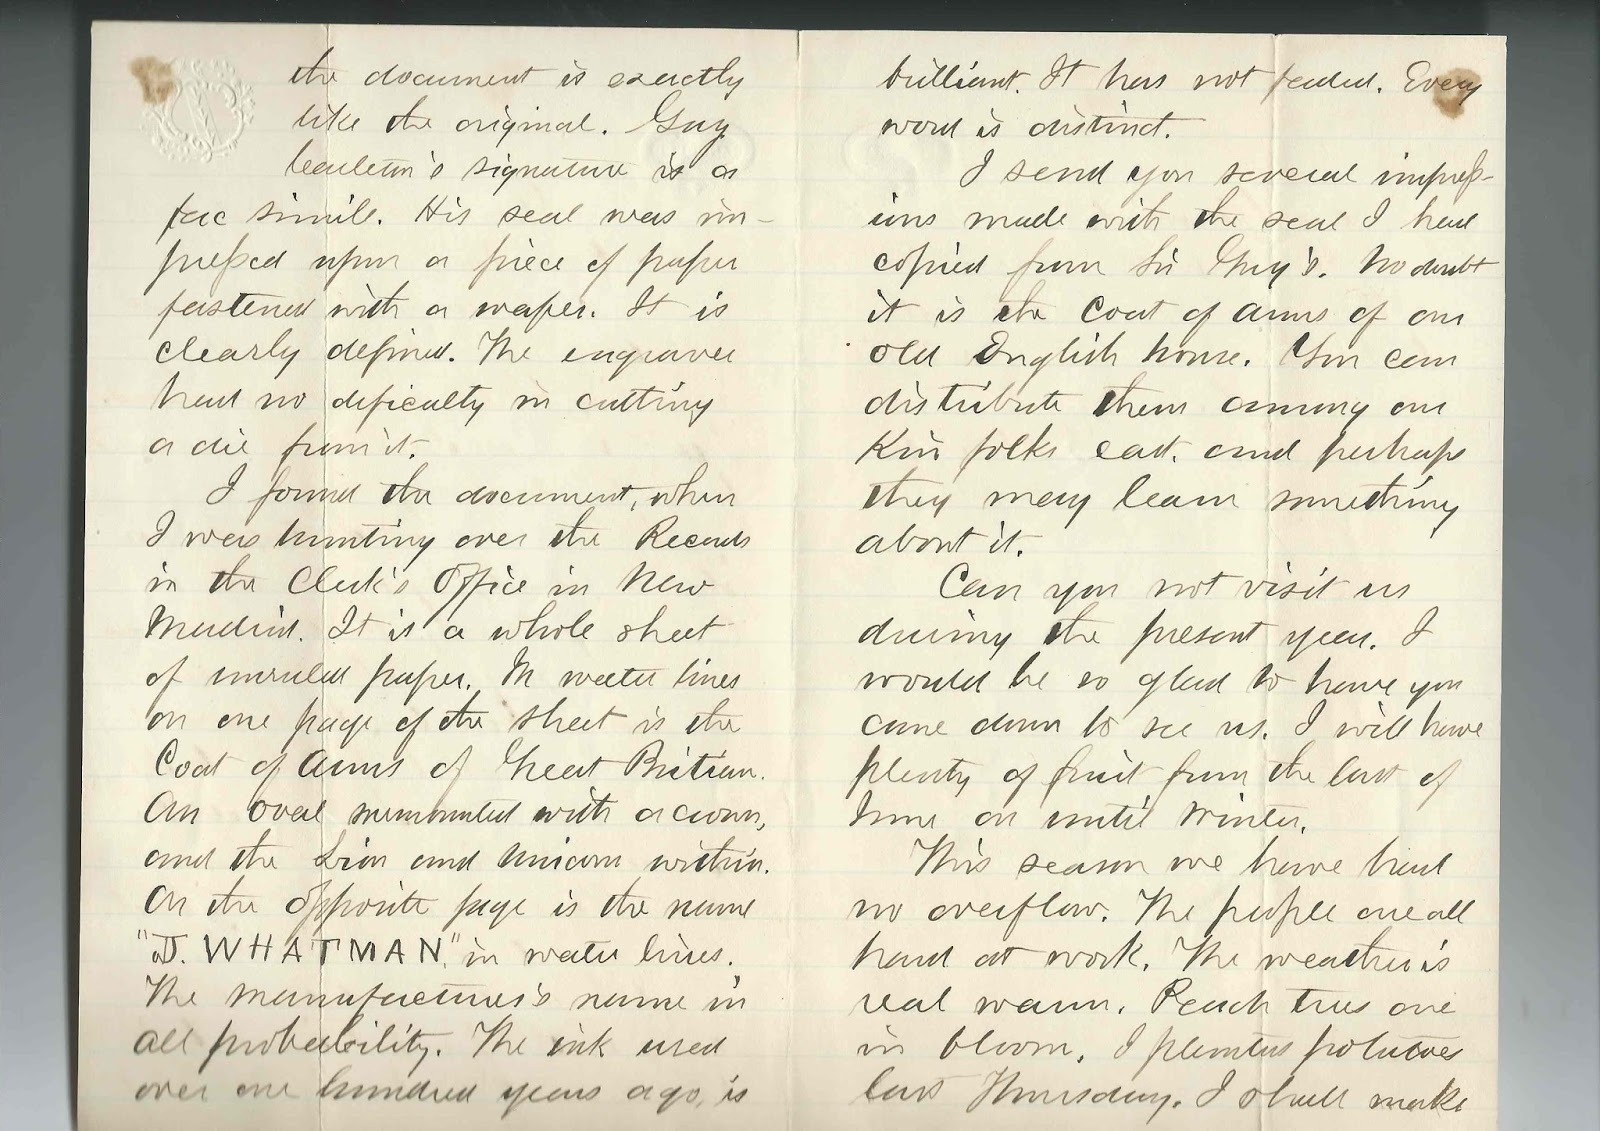 the document is exactly
like the original. Guy
Carleton's signature is a
fac simile. His seal was im-
pressed upon a piece of paper
fastened with a wafer. It is
clearly defined. The engraver
had no deficulty in cutting
a die from it.
I found the document, when
I was hunting over the Records
in the Clerk's Office in New
Madrid. It is a whole sheet
of unruled paper. In water lines
on one page of the sheet is the
Coat of Arms of Great Britian.
An oval surmounted with a crown,
and the Lion and Unicorn within.
On the opposite page is the name
"J. WHATMAN," in water lines.
The manufacturer's name in
all probability. The ink used
over one hundred years ago, is
brilliant. It has not faded. Every
word is distinct.
I send you several impress-
ions made with the seal I had
copied from Sir Guy's. No doubt
it is the Coat of Arms of an
old English house. You can
distribute them among our
Kin folks east. and perhaps
they may learn something
about it.
Can you not visit us
during the present year. I
would be so glad to have you
come down to see us. I will have
plenty of fruit from the last of
June on until Winter.
This season we have had
no overflow. The people are all
hard at work. The weather is
real warm. Peach trees are
in bloom. I planted potatoes
last Thursday. I shall make